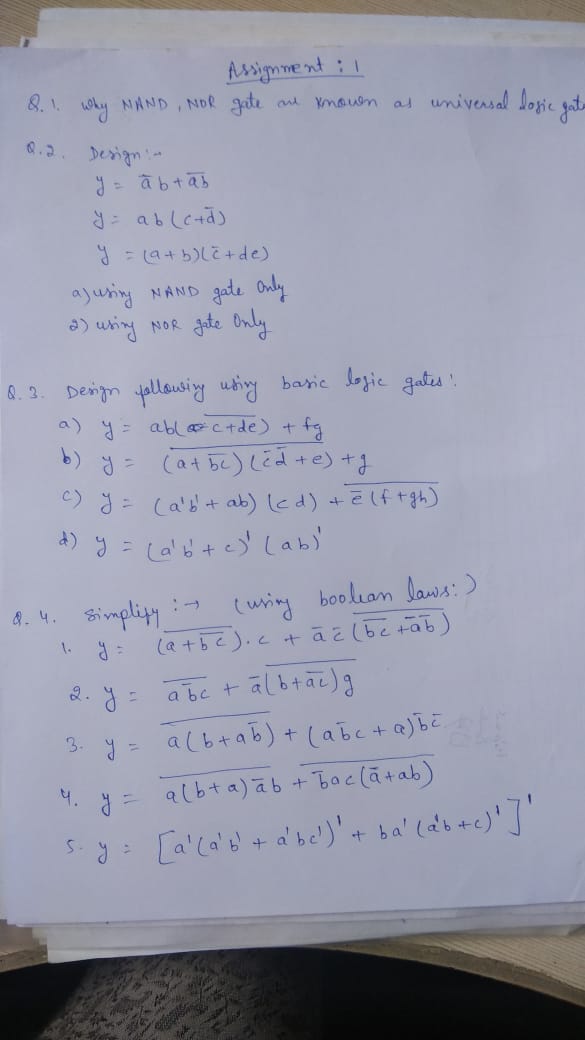 Assignment : 1
Q.1. why NAND, NOR gate are known as universal logic gate
Q.2. Design :-
y = a̅b + a̅b̅
y = ab(c+d̅)
y = (a+b)(c̅+de)
a) using NAND gate only
2) using NOR gate only
Q.3. Design following using basic logic gates :
a) y = ab( c̅+̅d̅e̅) + fg
b) y = (a + b̅c̅)(c̅d̅ + e) + g
c) y = (a'b' + ab) (cd) + e̅(f + gh)
d) y = (a'b' + c)' (ab)'
Q.4. Simplify :→ (using boolean laws:)
1. y = (a + b̅c̅).c + a̅c̅(b̅c̅ + a̅b̅)
2. y = ab̅c + a̅(b + a̅c̅)g
3. y = a(b + ab̅) + (ab̅c + a)b̅c̅
4. y = a(b+a)a̅b + b̅ac(a̅+ab)
5. y = [a'(a'b' + a'bc')' + ba'(a'b + c)']'